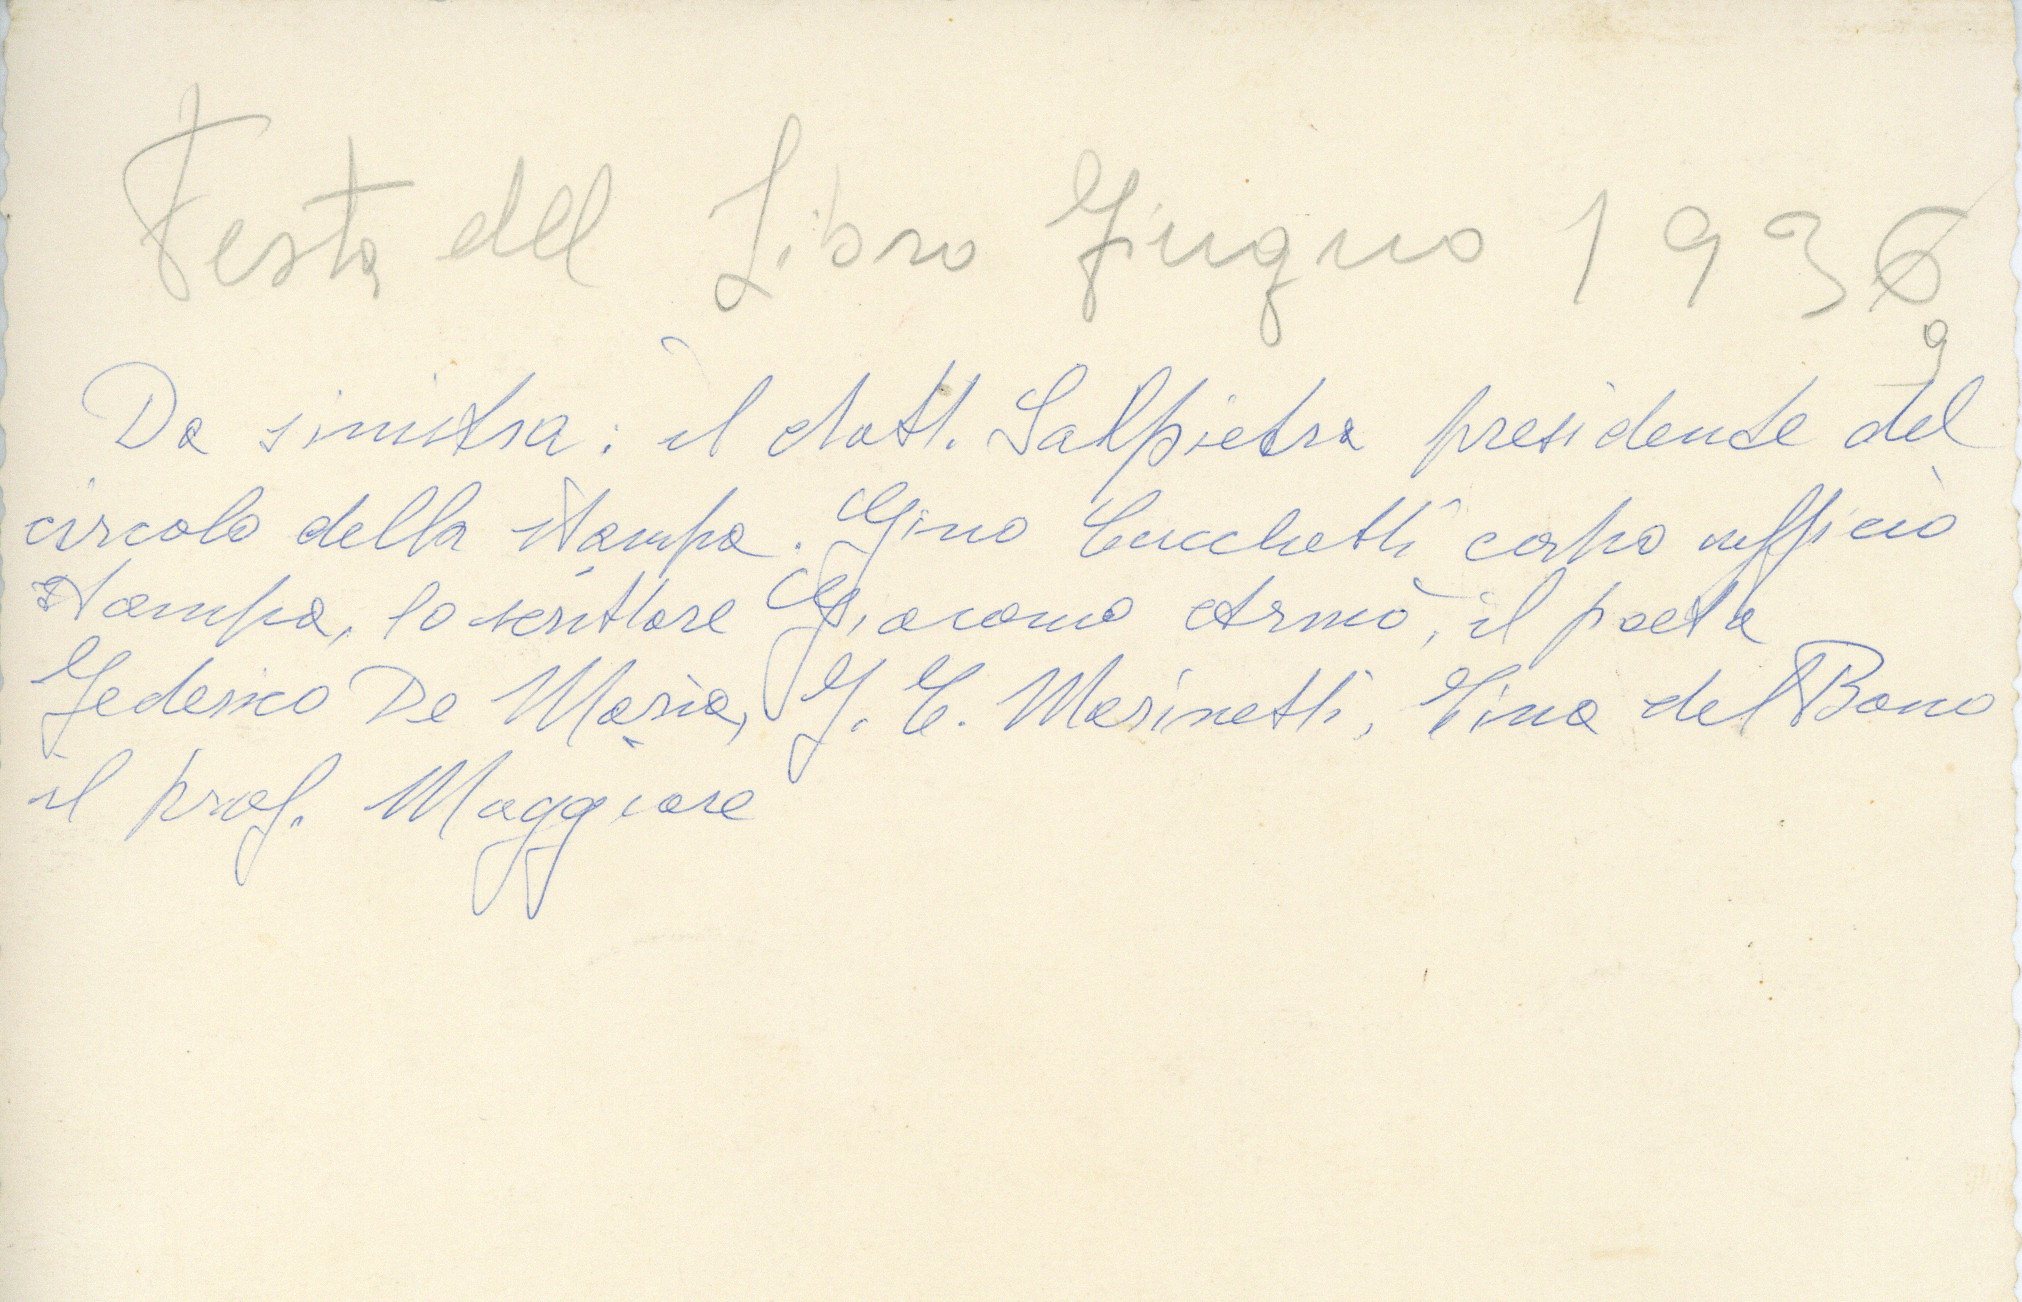 Festa dell Libro Giugno 1936
9
Da sinistra: il dott. Salpietra presidente del
circolo della stampa. Gino Cucchetti capo ufficio
stampa, lo scrittore Giacomo Armò, il poeta
Federico De Maria, F. T. Marinetti, Tina del Bono
il prof. Maggiore